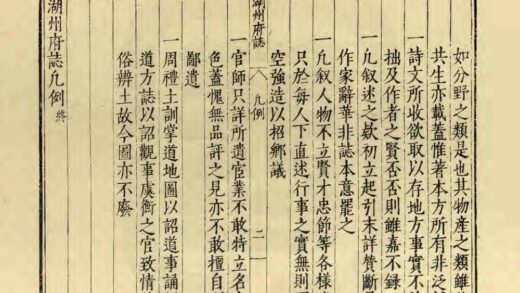 如分野之類是也其物産之類雖
共生亦載蓋惟著本方所有非泛
一詩文所收欲取以存地方事實不
拙及作者之賢否否則雖嘉不錄
一凡叙述之欵初立起引末詳贊斷
作家辭華非誌本意罷之
一凡叙人物不立賢才忠節等各樣
只於每人下直述行事之實無則
空強造以招鄉議
湖州府誌 凡例 二
一官師只詳所遺宦業不敢特立名
色蓋愧無品評之見亦不敢擅自
鄙遺
一周禮土訓掌道地圖以詔道事誦
道方誌以詔觀事虞衡之官致情
俗辨土故今圖亦不廢
湖州府誌凡例終